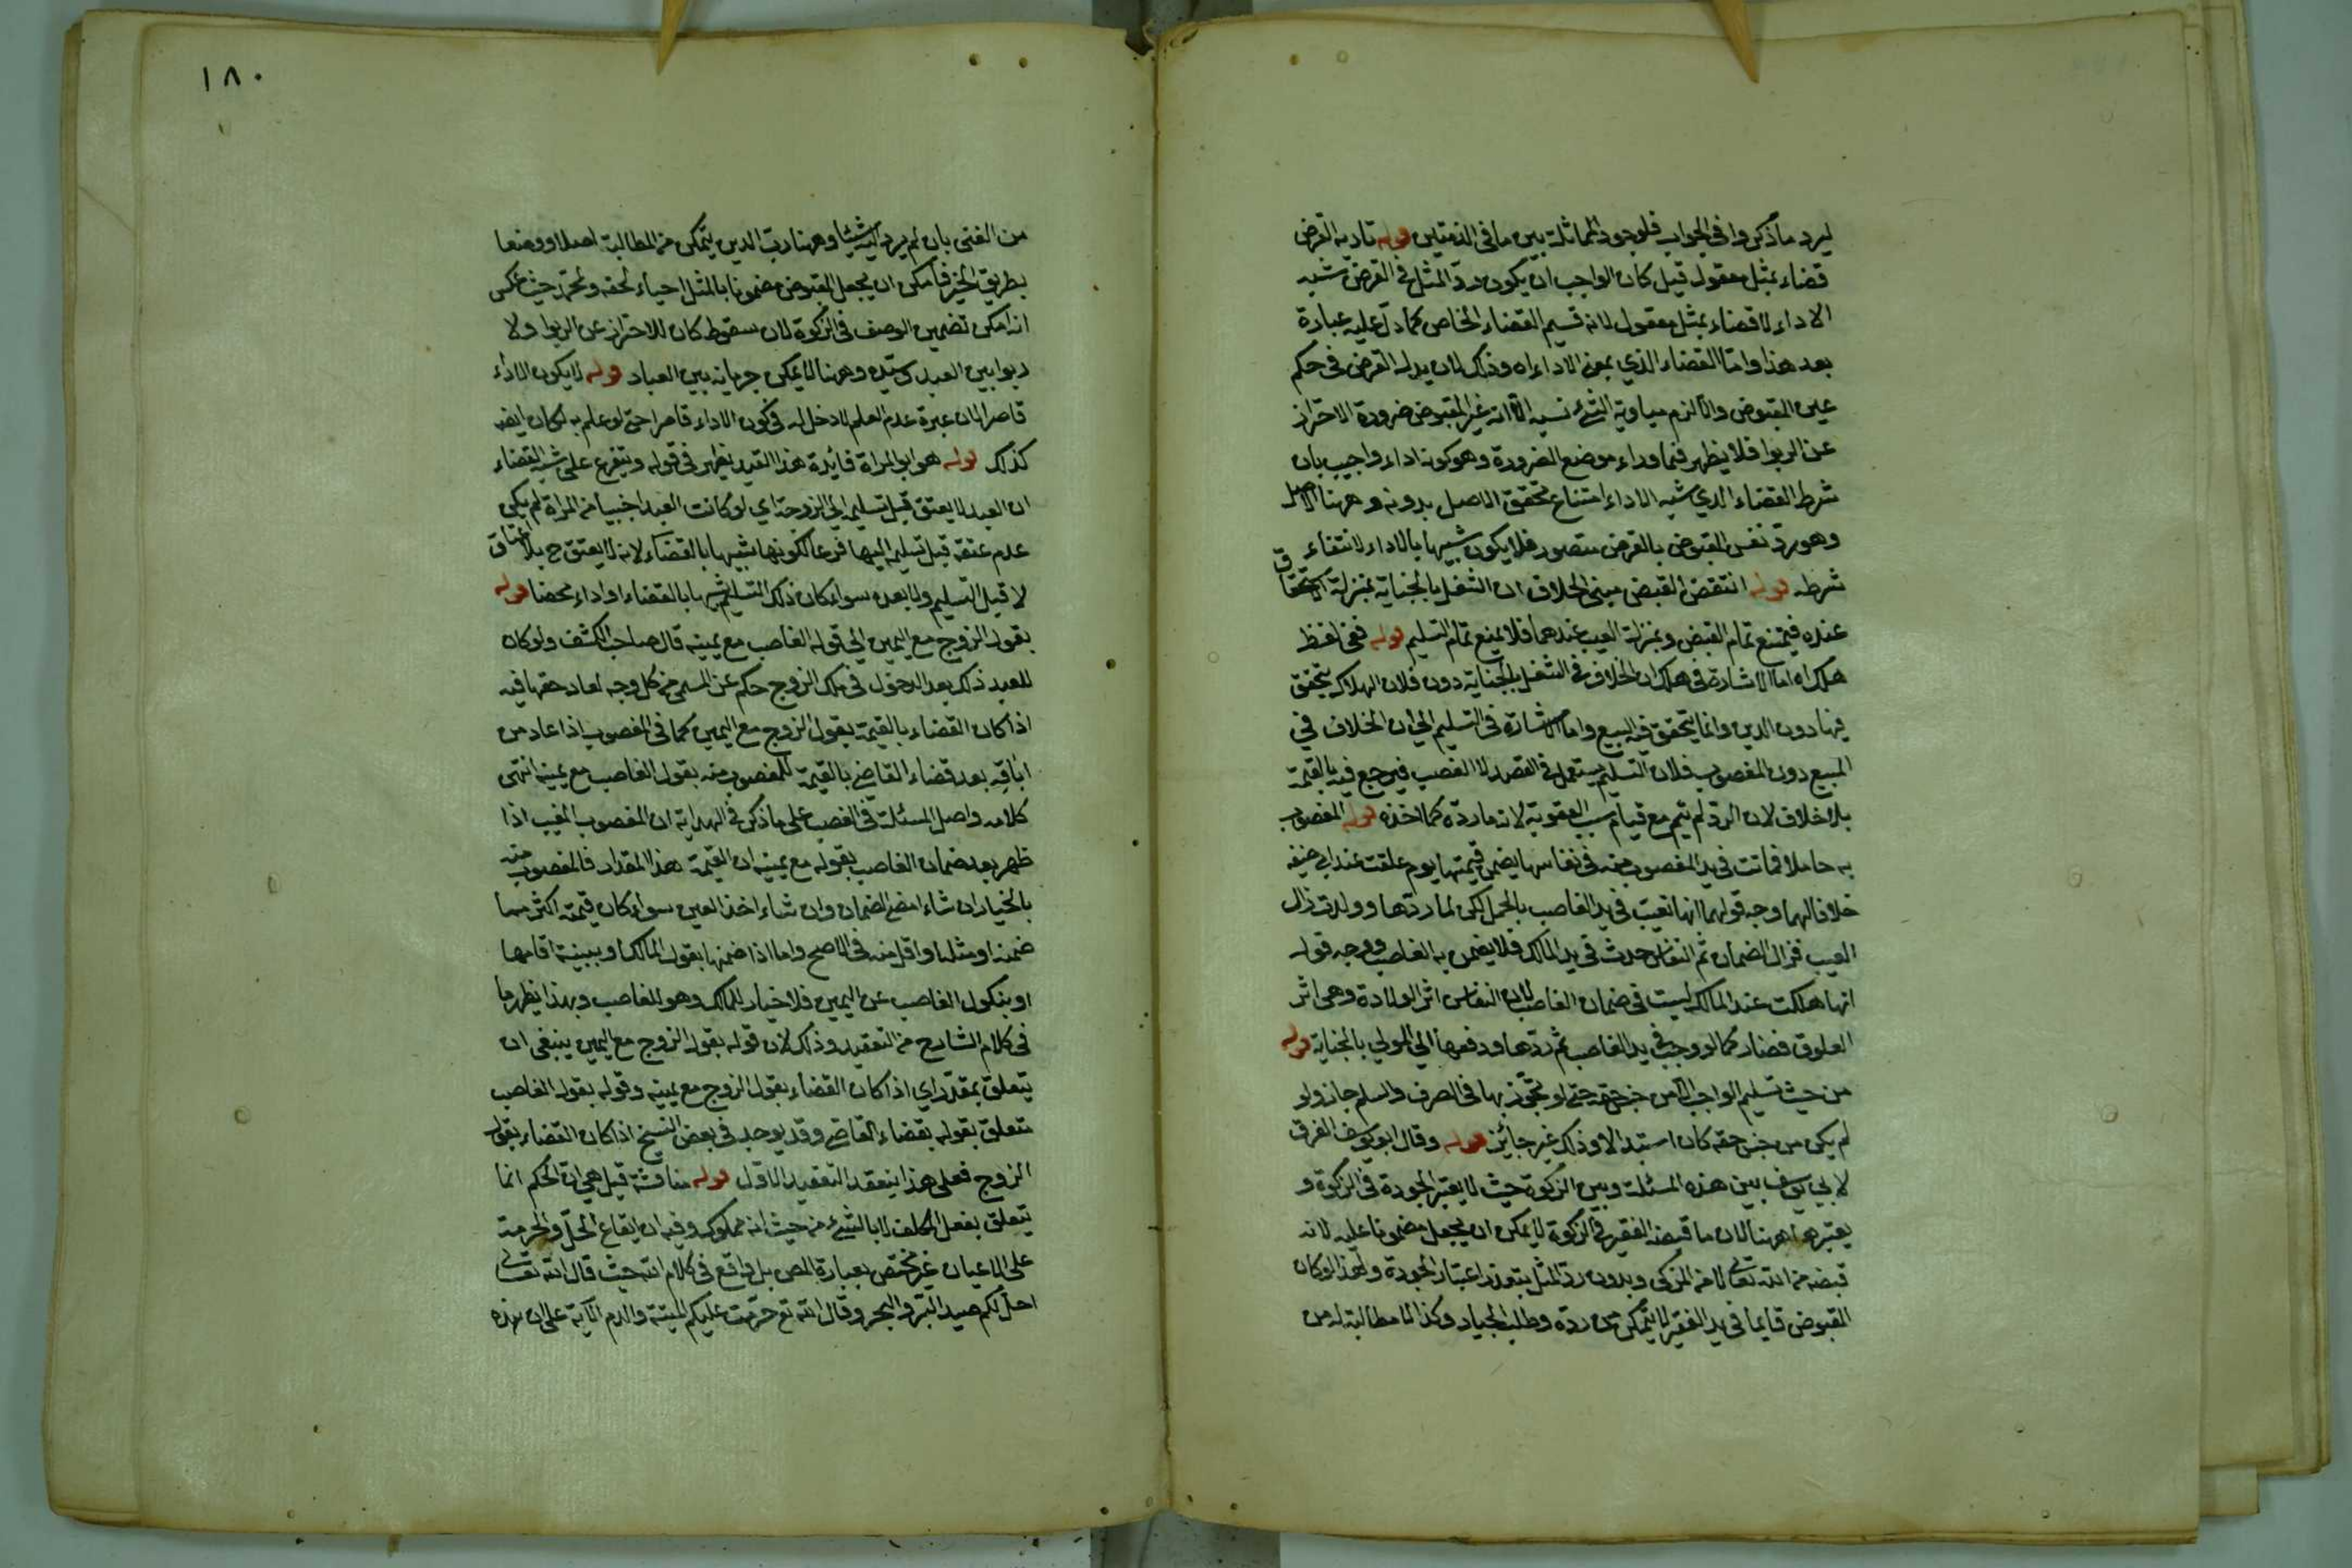 ليرد ما ذكروا في الجواب فلوجود المماثلة بين ما في الذمتين قوله تاديه القرض
قضاء بمثل معقول قيل كان الواجب ان يكون رد المثل في القرض شبه
الاداء لا قضاء بمثل معقول لانه قسيم القضاء الخاص كما دل عليه عبارة
بعد هذا واما القضاء الذي بمعنى الاداء اه وذلك لان بدل القرض في حكم
عين المقبوض والا لزم مبادلة الشئ نسية الا انه غير المقبوض ضرورة الاحتراز
عن الربوا فلا يظهر فيما وراء موضع الضرورة وهو كونه اداء واجيب بان
شرط القضاء الذي شبه الاداء امتناع تحقق الاصل بدونه وههنا الاصل
وهو رد نفس المقبوض بالقرض متصور فلا يكون شبيها بالاداء لانتفاء
شرطه قوله انتقض القبض مبنى الخلاف ان الشغل بالجناية بمنزلة الاستحقاق
عنده فيمتنع تمام القبض وبمنزلة العيب عندهما فلا يمنع تمام التسليم قوله ففي لفظ
هلك اه اما الاشارة في هلك ان الخلاف في الشغل بالجناية دون فلان الهلاك يتحقق
فيها دون الدين وانما يتحقق فيه البيع واما الاشارة في التسليم الى ان الخلاف في
المبيع دون المغصوب فلان التسليم يستعمل في القصد لا الغصب فيرجع فيه بالقيمة
بلا خلاف لان الرد لم يتم مع قيام سبب العقوبة لانه ما رده كما اخذه قوله المغصوب
به حاملا فماتت في يد المغصوب منه في نفاسها يضمن قيمتها يوم علقت عند ابي حنيفه
خلافا لهما وجه قولهما انها تعيبت في يد الغاصب بالحمل لكن لما ردها وولدت زال
العيب فزال الضمان ثم النفاس حدث في يد المالك فلا يضمن به الغاصب ووجه قوله
انها هلكت عند المالك ليست في ضمان الغاصب لان النفاس اثر الولادة وهي اثر
العلوق فصار كما لو وجبت في يد الغاصب ثم ردها ودفعها الى المولى بالجناية قوله
من حيث تسليم الواجب الا من جنس حقه حتى لو تجوز بها في الصرف والسلم جاز ولو
لم يكن من جنس حقه كان استبدالا وذلك غير جائز قوله وقال ابو يوسف الفرق
لابي يوسف بين هذه المسئلة وبين الزكوة حيث لا يعتبر الجودة في الزكوة و
يعتبرها ههنا لان ما قبضه الفقير في الزكوة لا يمكن ان يجعل مضمونا عليه لانه
قبضه من الله تعالى لا من المزكى وبدون رد المثل يتعذر اعتبار الجودة ولهذا لو كان
المقبوض قايما في يد الفقير لا يتمكن من رده وطلب الجياد وكذا لا مطالبة له من
١٨٠
من الغنى بان لم يرد اليه شيئا وههنا رب الدين يتمكن من المطالبة اصلا ووصفا
بطريق الجبر فامكن ان يجعل المقبوض مضمونا بالمثل احياء لحقه ولمحمد حيث عكس
انه امكن تضمين الوصف في الزكوة لان سقوطه كان للاحتراز عن الربوا ولا
ربوا بين العبد وسيده وههنا لا يمكن جريانه بين العباد قوله لا يكون الاداء
قاصرا لان عبرة عدم العلم لا دخل له في كون الاداء قاصرا حتى لو علم به لكان ايضا
كذلك قوله هو ابو المراة فايدة هذا القيد يظهر في قوله ويتفرع على شبه القضاء
ان العبد لا يعتق قبل تسليمه الى الزوجة اي لو كانت العبد اجنبيا من المراة لم يكن
عدم عتقه قبل تسليمه اليها فرعا لكونها شبيها بالقضاء لانه لا يعتق ح بلا اعتاق
لا قبل التسليم ولا بعده سواء كان ذلك التسليم شبيها بالقضاء او اداء محضا قوله
بقول الزوج مع اليمين الى قوله الغاصب مع يمينه قال صاحب الكشف ولو كان
للعبد ذلك بعد الدخول في ملك الزوج حكم عين المسمى من كل وجه لعاد حقها فيه
اذا كان القضاء بالقيمة بقول الزوج مع اليمين كما في المغصوب اذا عاد من
اباقه بعد قضاء القاضي بالقيمة للمغصوب منه بقول الغاصب مع يمينه انتهى
كلامه واصل المسئلة في الغصب على ما ذكر في الهداية ان المغصوب المغيب اذا
ظهر بعد ضمان الغاصب بقوله مع يمينه ان القيمة هذا المقدار فالمغصوب منه
بالخيار ان شاء امضى الضمان وان شاء اخذ العين سواء كان قيمته اكثر مما
ضمنه او مثله او اقل منه في الاصح واما اذا ضمنها بقول المالك او ببينة اقامها
او بنكول الغاصب عن اليمين فلا خيار للمالك وهو للغاصب وبهذا يظهر ما
في كلام الشارح من التعقيد وذلك لان قوله بقول الزوج مع اليمين ينبغي ان
يتعلق بمقدر اي اذا كان القضاء بقول الزوج مع يمينه وقوله بقول الغاصب
متعلق بقوله بقضاء القاضي وقد يوجد في بعض النسخ اذا كان القضاء بقول
الزوج فعلى هذا ينعقد التعقيد الاول قوله مناقشة قيل هي ان الحكم انما
يتعلق بفعل المكلف لا بالشئ من حيث انه مملوك وفيه ان ايقاع الحل والحرمة
على الاعيان غير مختص بعبارة المص بل واقع في كلام الله حيث قال الله تعالى
احل لكم صيد البر والبحر وقال الله تع حرمت عليكم الميتة والدم الآية على ان هذه